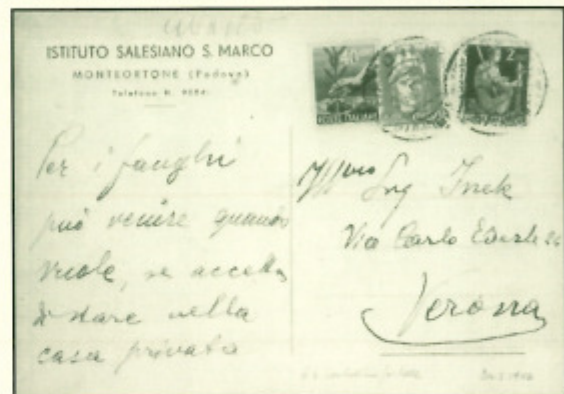 ISTITUTO SALESIANO S. MARCO
MONTEORTONE (Padova)
Telefono N.
POSTE ITALIANE
2
Per i fanghi
può venire quando
vuole, se accetta
di stare nella
casa privata
Ill/mo Ing
Via Carlo
Verona